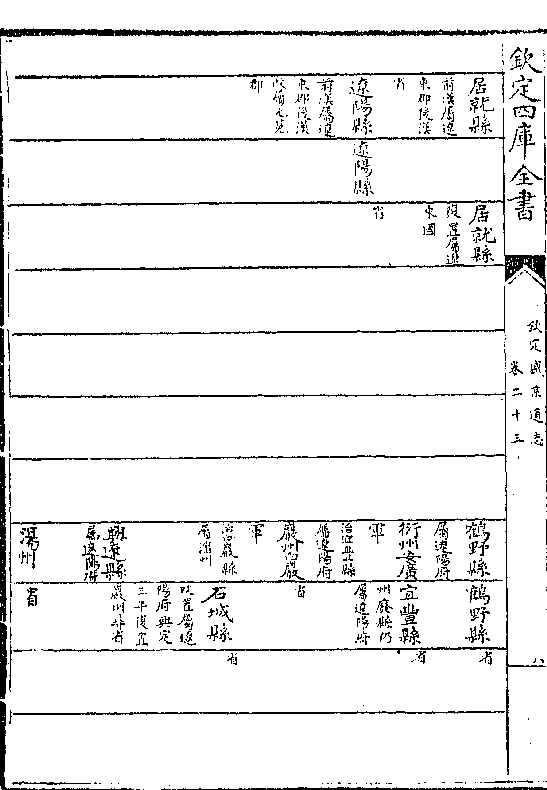 欽定四庫全書
欽定盛京通志
卷二十三
居就縣
前漢屬遼
東郡後漢
省
遼陽縣
前漢屬遼
東郡後漢
改屬元菟
郡
遼陽縣
居就縣
復置屬遼
東國
省
鶴野縣
屬遼陽府
衍州安廣
軍
治宜豐縣
屬遼陽府
巖州白巖
軍
治白巖縣
屬瀋州
屬遼陽府
湯州
鶴野縣
宜豐縣
州廢縣仍
屬遼陽府
省
石城縣
改置屬遼
陽府興定
三年復置
巖州尋省
省
省
省
省